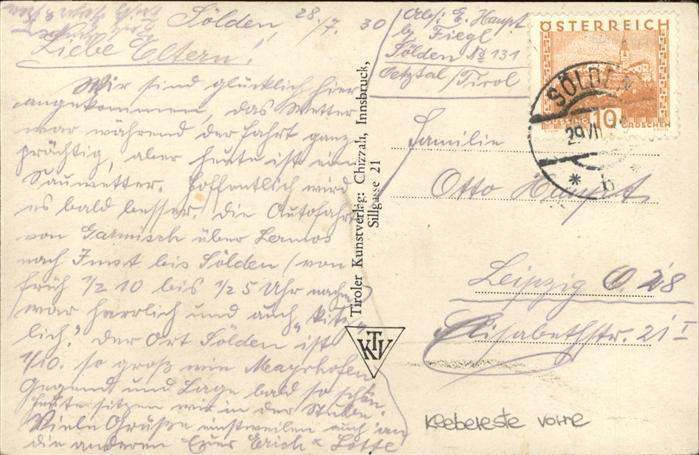 Sölden, 28./7. 30
Liebe Eltern!
Wir sind glücklich hier
angekommen, das Wetter
war während der Fahrt ganz
prächtig, aber heute ist ein
Sauwetter. Hoffentlich wird
es bald besser. Die Autofahrt
von Garmisch über Lermos
nach Imst bis Sölden (von
früh 1/2 10 bis 1/2 5 Uhr nachm)
war herrlich und auch "kitz-
lich". Der Ort Sölden ist
1/10. so groß wie Mayrhofen
Gegend und Lage bald so schön.
Heute sitzen wir in der Stube.
Viele Grüße einstweilen auch an
die anderen Eure Erich & Lotte
Abs: E. Haupt
b. Fiegl
Sölden No 131
Oetztal/Tirol
Familie
Otto Haupt
Leipzig O. 28
Elisabethstr. 21 I
Tiroler Kunstverlag: Chizzali, Innsbruck,
Sillgasse 21
KTV
ÖSTERREICH
10
GROSCHEN
SÖLDEN
29.VII
* b
Klebereste vorne